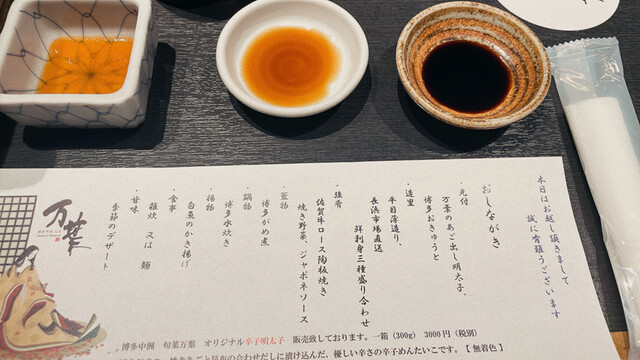 本日はお越し頂きまして
誠に有難うございます
おしながき
・先付
万葉のあご出し明太子、
博多おきゅうと
・造里
平目薄造り、
長浜市場直送
鮮刺身三種盛り合わせ
・強肴
佐賀牛ロース陶板焼き
焼き野菜、ジャポネソース
・釜物
博多がめ煮
・鍋物
博多水炊き
・揚物
白魚のかき揚げ
・食事
雑炊 又は 麺
・甘味
季節のデザート
万葉
博多中洲 旬菜万葉 オリジナル辛子明太子 販売致しております。一箱(300g) 3000円(税別)
昆布の合わせだしに漬け込んだ、優しい辛さの辛子めんたいこです。【 無着色 】